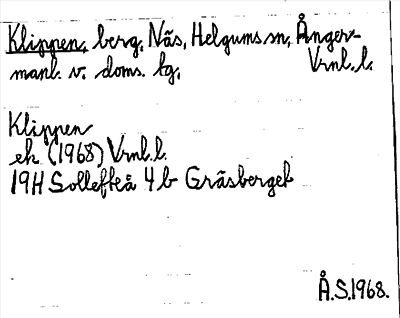 Klippen, berg, Näs, Helgums sn, Ånger-
manl. v. doms. bg, Vrnl. l.
Klippen
ek (1968) Vrnl. l.
19H Sollefteå 4b Gräsberget
Å.S. 1968.